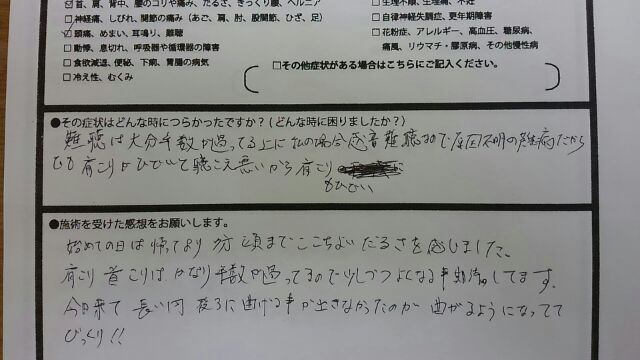 ☑首、肩、背中、腰のコリや痛み、だるさ、ぎっくり腰、ヘルニア
□神経痛、しびれ、関節の痛み（あご、肩、肘、股関節、ひざ、足）
☑頭痛、めまい、耳鳴り、難聴
□動悸、息切れ、呼吸器や循環器の障害
□食欲減退、便秘、下痢、胃腸の病気
□冷え性、むくみ
□生理不順、生理痛、不妊
□自律神経失調症、更年期障害
□花粉症、アレルギー、高血圧、糖尿病、
痛風、リウマチ・膠原病、その他慢性病
□その他症状がある場合はこちらにご記入ください。
●その症状はどんな時につらかったですか？（どんな時に困りましたか？）
難聴は大分年数が過ってる上に私の場合感音難聴なので原因不明の難病だから
肩こりがひどいて聴こえ悪いから肩こり
もひどい
●施術を受けた感想をお願いします。
始めての日は帰ってより 頭までここちよいだるさを感じました。
肩こり 首こりはかなり年数が過ってるので少しづつよくなる事期待してます。
今日来て 長い間 後ろに曲げる事が出きなかったのが 曲がるようになってて
びっくり!!